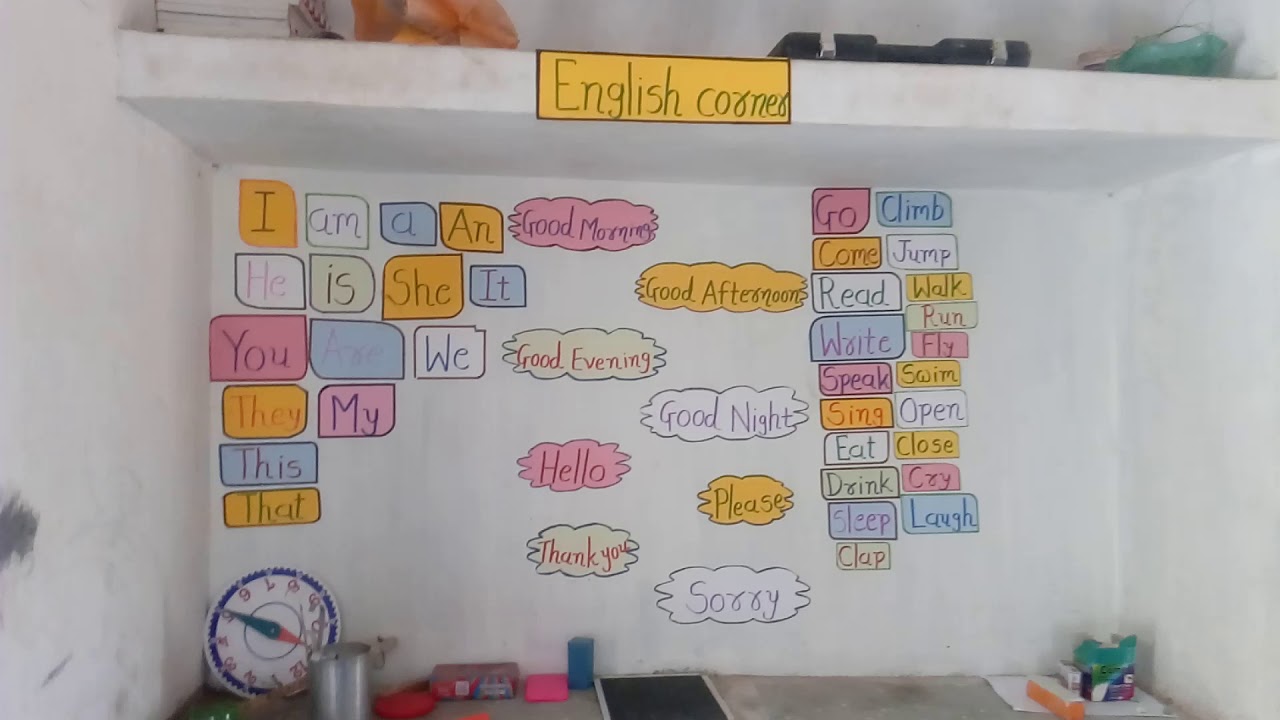 English corner
I am a An
He is She It
You Are We
They My
This
That
Good Morning
Good Afternoon
Good Evening
Good Night
Hello
Please
Thank you
Sorry
Go Climb
Come Jump
Read Walk
Run
Write Fly
Speak Swim
Sing Open
Eat Close
Drink Cry
Sleep Laugh
Clap